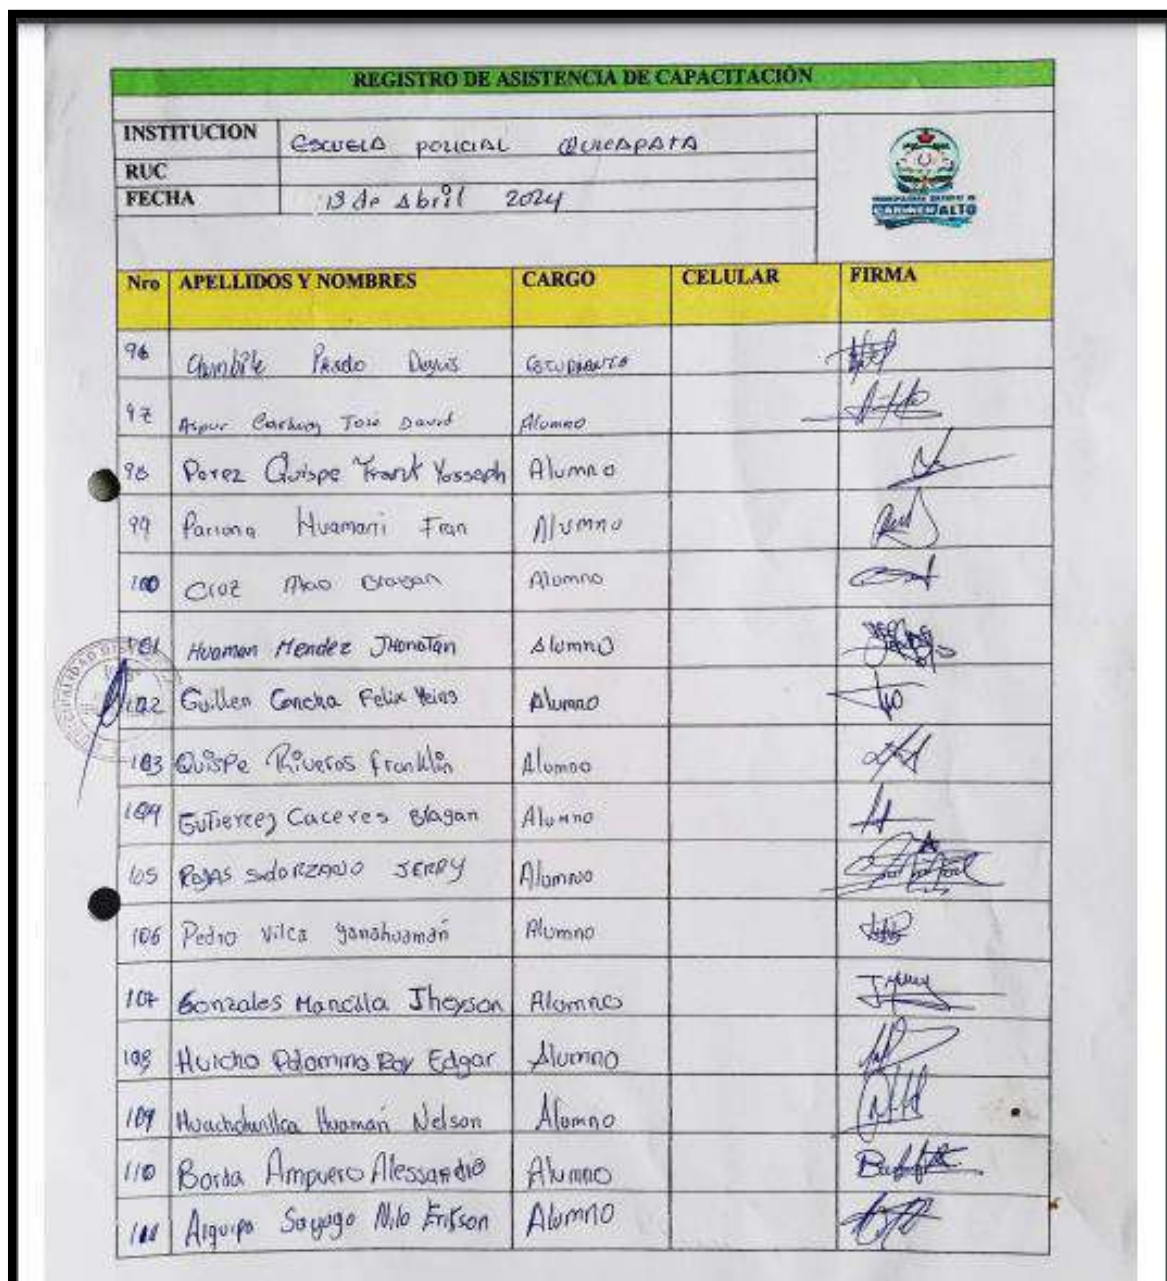 REGISTRO DE ASISTENCIA DE CAPACITACIÓN
INSTITUCION ESCUELA POLICIAL QUICAPATA
RUC
FECHA 13 de Abril 2024
CARMEN ALTO
Nro APELLIDOS Y NOMBRES CARGO CELULAR FIRMA
96 Prado Estudiante
97 José David Alumno
98 Perez Quispe Frank Yosseph Alumno
99 Pariona Huamani Fran Alumno
100 Cruz Alumno
101 Huaman Mendez Jhonatan Alumno
102 Guillen Concha Felix Alumno
103 Quispe Riveros Franklin Alumno
104 Gutierrez Caceres Blagan Alumno
105 Rojas JERRY Alumno
106 Pedro Vilca Yanahuamán Alumno
107 Gonzales Mancilla Jheyson Alumno
108 Huicho Palomino Roy Edgar Alumno
109 Huamani Nelson Alumno
110 Borda Ampuero Alessandro Alumno
111 Sayago Nilo Erikson Alumno